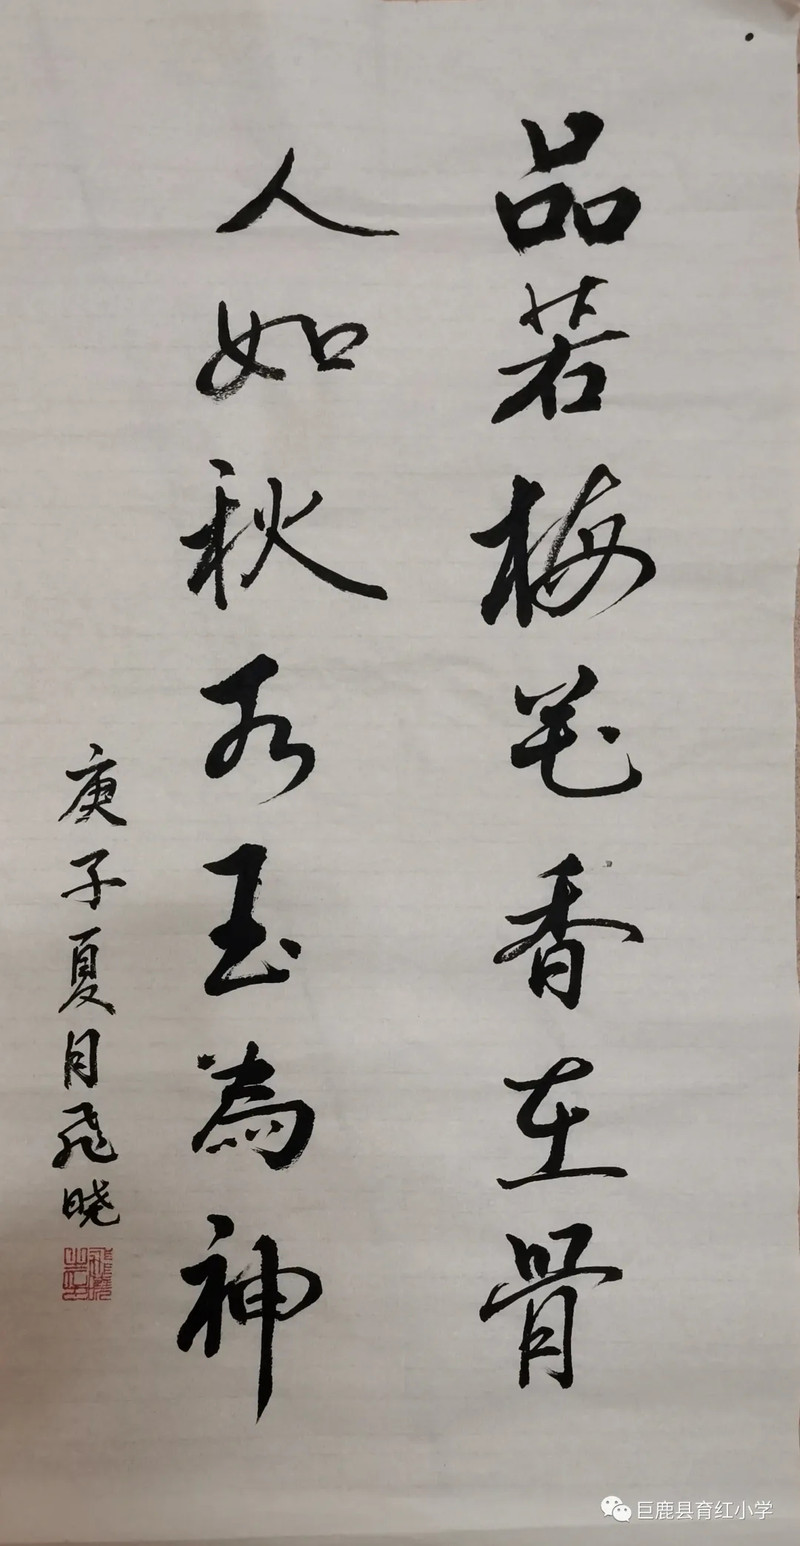 品若梅花香在骨
人如秋水玉為神
庚子夏月飛晓
巨鹿县育红小学